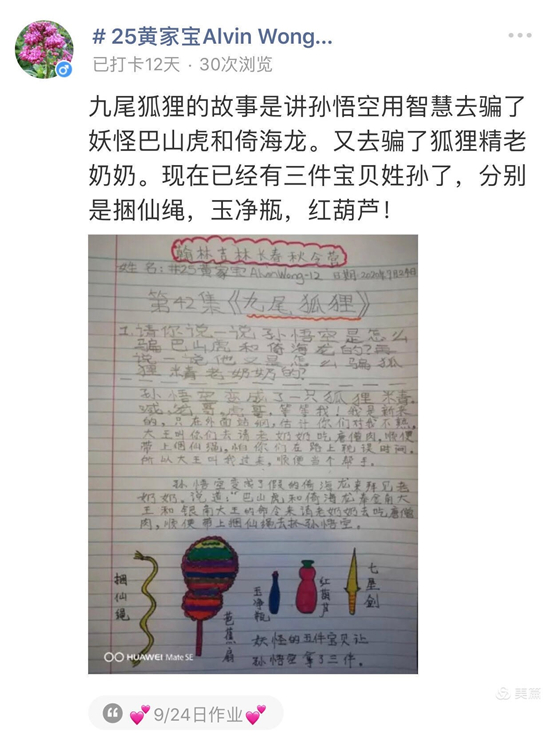 # 25黄家宝Alvin Wong...
已打卡12天 · 30次浏览
九尾狐狸的故事是讲孙悟空用智慧去骗了
妖怪巴山虎和倚海龙。又去骗了狐狸精老
奶奶。现在已经有三件宝贝姓孙了，分别
是捆仙绳，玉净瓶，红葫芦！
翰林吉林长春秋令营
姓名:#25黄家宝AlvinWong-12 日期:2020年9月24日
第42集《九尾狐狸》
1.请你说一说孙悟空是怎么
骗巴山虎和倚海龙的?再
说一说他又是怎么骗狐
狸精老奶奶的?
孙悟空变成了一只狐狸精
喊:龙哥,虎哥,等等我!我是新来
的,只在外面站岗,估计你们对我不熟,
大王叫你们去请老奶奶吃唐僧肉,顺便
带上捆仙绳,怕你们在路上耽误时间,
所以大王叫我过来,顺便当个帮手。
孙悟空变成了假的倚海龙来拜见老
奶奶。说道:“巴山虎和倚海龙奉金角大
王和银角大王的命令来请老奶奶去吃唐僧
肉,顺便带上捆仙绳去抓孙悟空。
捆仙绳
芭蕉扇
玉净瓶
红葫芦
七星剑
妖怪的五件宝贝让
孙悟空拿了三件。
HUAWEI Mate SE
美篇
9/24日作业